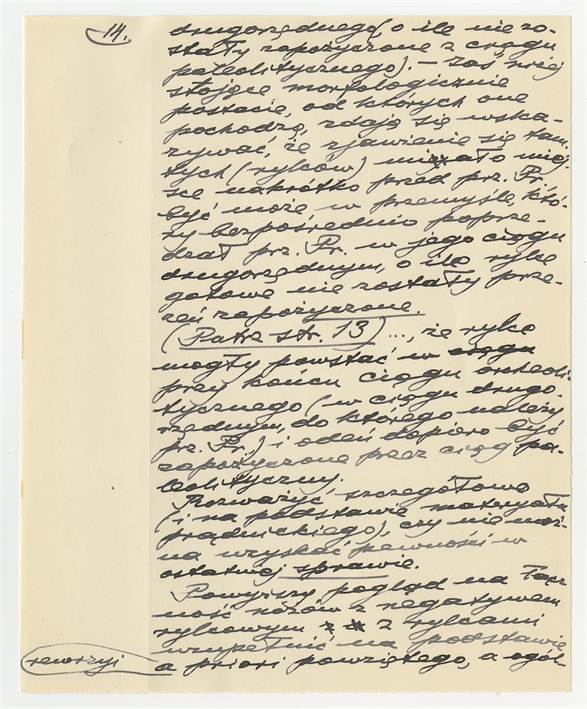 14.
drugorzędnego (o ile nie zo-
stały zapożyczone z ciągu
paleolitycznego). – Zaś niej
stojące morfologicznie
postacie, od których one
pochodzą, zdają się wska-
zywać, że zjawienie się tam-
tych (rylców) miało miej-
sce nakrótko przed prz. Pr.
być może w przemyśle, któ-
ry bezpośrednio poprze-
dzał prz. Pr. w jego ciągu
drugorzędnym, o ile rylce
gotowe nie zostały prze-
zeń zapożyczone.
(Patrz str. 13) ..., że rylce
mogły powstać w
przy końcu ciągu archeoli-
tycznego (w ciągu drugo-
rzędnym, do którego należy
prz. Pr.) i odeń dopiero być
zapożyczone przez ciąg pa-
leolityczny.
Rozważyć szczegółowo
(i na podstawie materyału
prądnickiego), czy nie moż-
na uzyskać pewności w
ostatniej sprawie.
Powyższy pogląd na łącz
ność nożów z negatywem
rylcowym z rylcami
uzupełnić na podstawie
rewizyi a priori powziętego, a ogól-